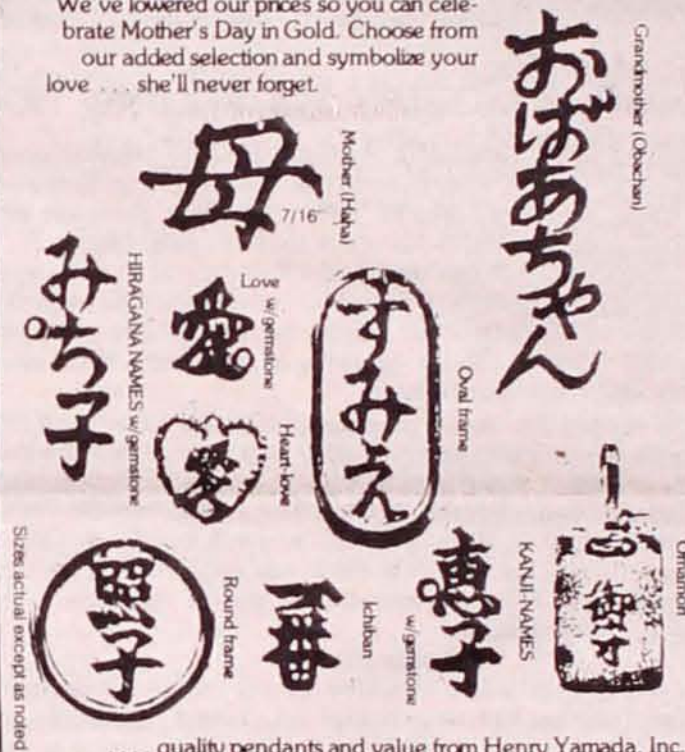 We've lowered our prices so you can cele-
brate Mother's Day in Gold. Choose from
our added selection and symbolize your
love . . . she'll never forget.
おばあちゃん
Grandmother (Obachan)
母
7/16"
Mother (Haha)
みち子
HIRAGANA NAMES w/gemstone
愛
Love
w/gemstone
愛
Heart-love
すみえ
Oval frame
照子
Round frame
一番
Ichiban
恵子
KANJI-NAMES
w/gemstone
御守
Omamori
Sizes actual except as noted
quality pendants and value from Henry Yamada, Inc.